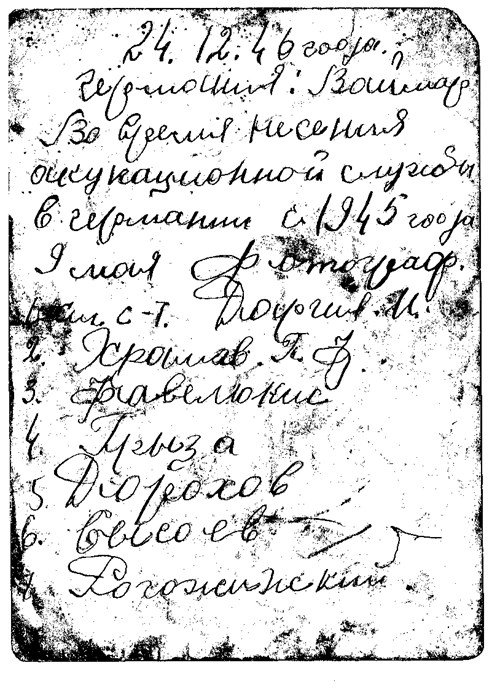 24.12.46 года.
Германия: Ваймар
Во время несения
окукационной службы
в германии с 1945 года
9 мая Фотограф.
с-т. И.
2. Храмов. П. Ф.
3. Фавелюкис
4. Грыза
5 Дорохов
6. Сысоев
7. Рогожинский